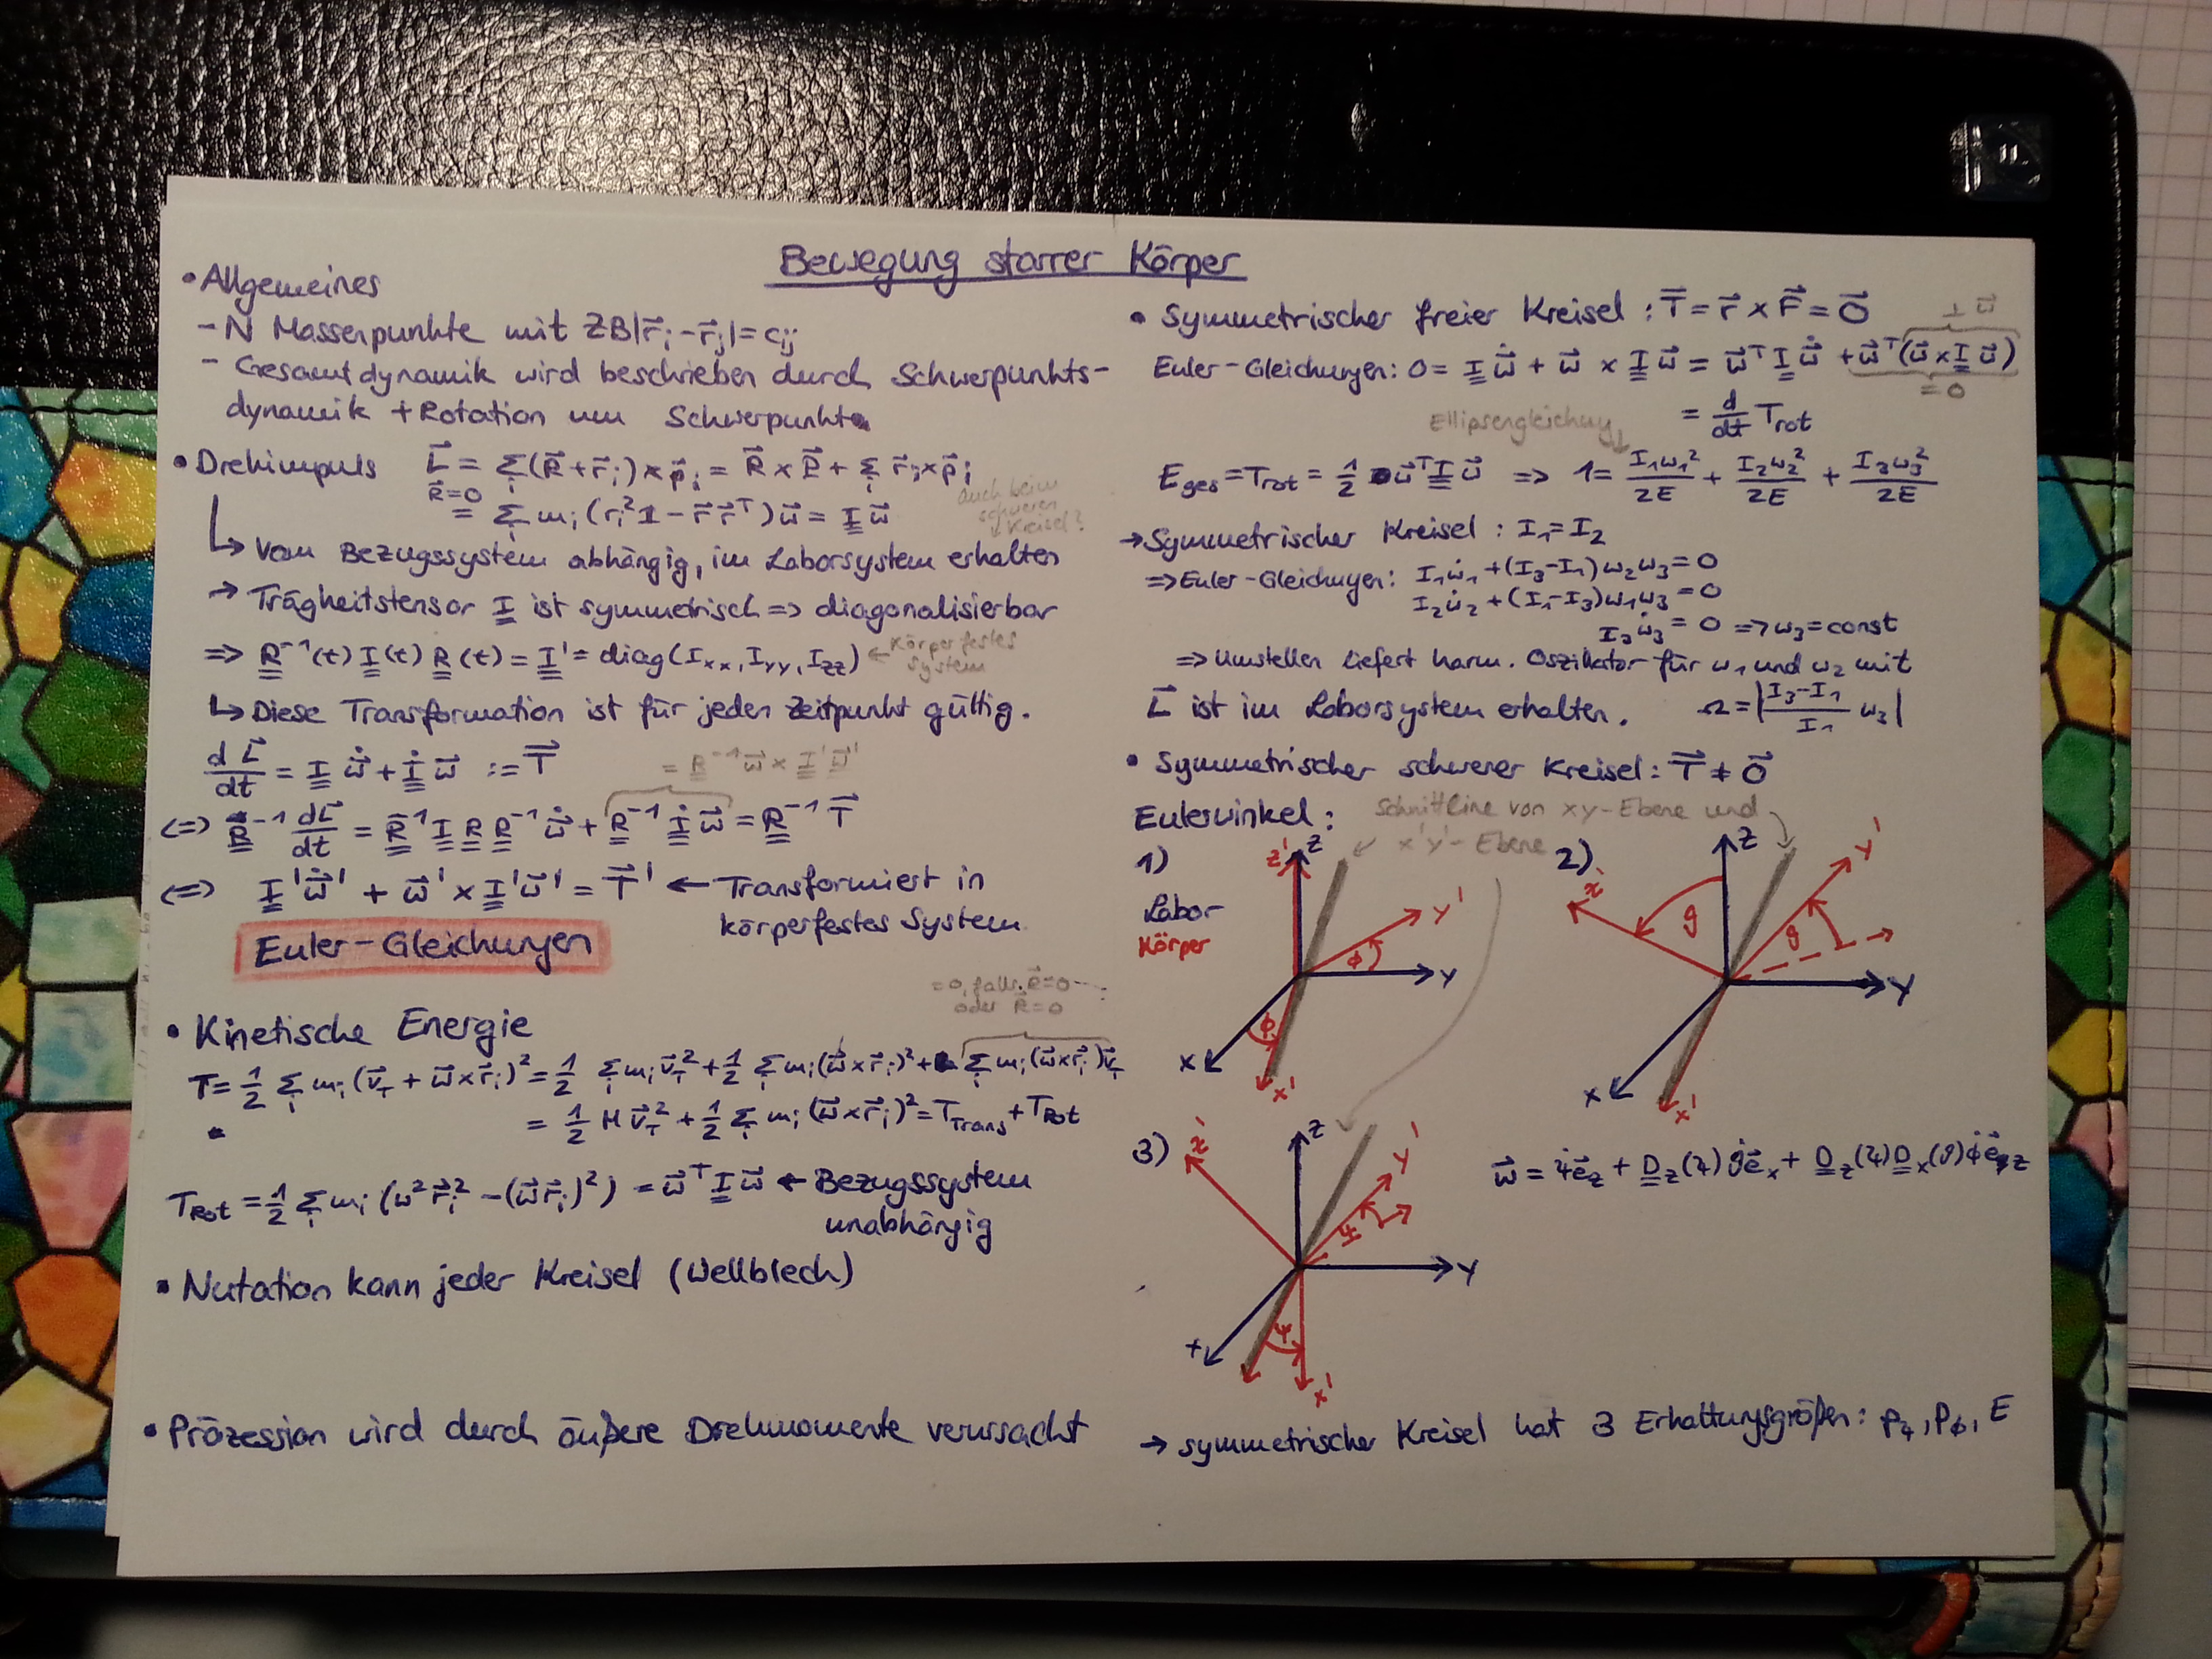 Bewegung starrer Körper
• Allgemeines
- N Massenpunkte mit ZB |r⃗ᵢ - r⃗ⱼ| = cᵢⱼ
- Gesamtdynamik wird beschrieben durch Schwerpunkts-
dynamik + Rotation um Schwerpunkt
• Drehimpuls L⃗ = Σᵢ (R⃗ + r⃗ᵢ) × p⃗ᵢ = R⃗ × P⃗ + Σᵢ r⃗ᵢ × p⃗ᵢ
R⃗=0
= Σᵢ mᵢ (rᵢ² 1 - r⃗ r⃗ᵀ) ω⃗ = I ω⃗
auch beim
schweren
Kreisel?
↳ Vom Bezugssystem abhängig, im Laborsystem erhalten
→ Trägheitstensor I ist symmetrisch => diagonalisierbar
=> R⁻¹(t) I(t) R(t) = I' = diag(Ixx, Iyy, Izz) ← Körperfestes
System
↳ Diese Transformation ist für jeden Zeitpunkt gültig.
dL⃗/dt = I ω⃗̇ + İ ω⃗ := T⃗
= R⁻¹ ω⃗ × I' ω⃗'
<=> R⁻¹ dL⃗/dt = R⁻¹ I R R⁻¹ ω⃗̇ + R⁻¹ İ ω⃗ = R⁻¹ T⃗
<=> I' ω⃗̇' + ω⃗' × I' ω⃗' = T⃗' ← Transformiert in
körperfestes System
Euler-Gleichungen
= 0, falls R⃗=0
oder R⃗=0
• Kinetische Energie
T = 1/2 Σᵢ mᵢ (v⃗_T + ω⃗ × r⃗ᵢ)² = 1/2 Σᵢ mᵢ v⃗_T² + 1/2 Σᵢ mᵢ (ω⃗ × r⃗ᵢ)² + Σᵢ mᵢ (ω⃗ × r⃗ᵢ) v⃗_T
= 1/2 M v⃗_T² + 1/2 Σᵢ mᵢ (ω⃗ × r⃗ᵢ)² = T_Trans + T_Rot
T_Rot = 1/2 Σᵢ mᵢ (ω² r⃗ᵢ² - (ω⃗ r⃗ᵢ)²) = ω⃗ᵀ I ω⃗ ← Bezugssystem
unabhängig
• Nutation kann jeder Kreisel (Wellblech)
• Präzession wird durch äußere Drehmomente verursacht
• Symmetrischer freier Kreisel: T⃗ = r⃗ × F⃗ = 0⃗
⊥ ω⃗
Euler-Gleichungen: 0 = I ω⃗̇ + ω⃗ × I ω⃗ = ω⃗ᵀ I ω⃗̇ + ω⃗ᵀ (ω⃗ × I ω⃗)
= 0
= d/dt T_rot
Ellipsengleichung
E_ges = T_rot = 1/2 ω⃗ᵀ I ω⃗ => 1 = I₁ω₁²/2E + I₂ω₂²/2E + I₃ω₃²/2E
→ Symmetrischer Kreisel: I₁ = I₂
=> Euler-Gleichungen: I₁ω̇₁ + (I₃-I₁) ω₂ω₃ = 0
I₂ω̇₂ + (I₁-I₃) ω₁ω₃ = 0
I₃ω̇₃ = 0 => ω₃ = const
=> Umstellen liefert harm. Oszillator für ω₁ und ω₂ mit
L⃗ ist im Laborsystem erhalten. Ω = |(I₃-I₁)/I₁ ω₃|
• Symmetrischer schwerer Kreisel: T⃗ ≠ 0⃗
Eulerwinkel: Schnittline von xy-Ebene und
x'y'-Ebene
1)
Labor
Körper
z' z y' ϕ y ϕ x x'
2)
z' z y' ϑ ϑ y x x'
3)
z' z y' ψ y x ψ x'
ω⃗ = ψ̇ e⃗_z + D_z(ψ) ϑ̇ e⃗_x + D_z(ψ) D_x(ϑ) ϕ̇ e⃗_z
→ symmetrischer Kreisel hat 3 Erhaltungsgrößen: p_ψ, p_ϕ, E